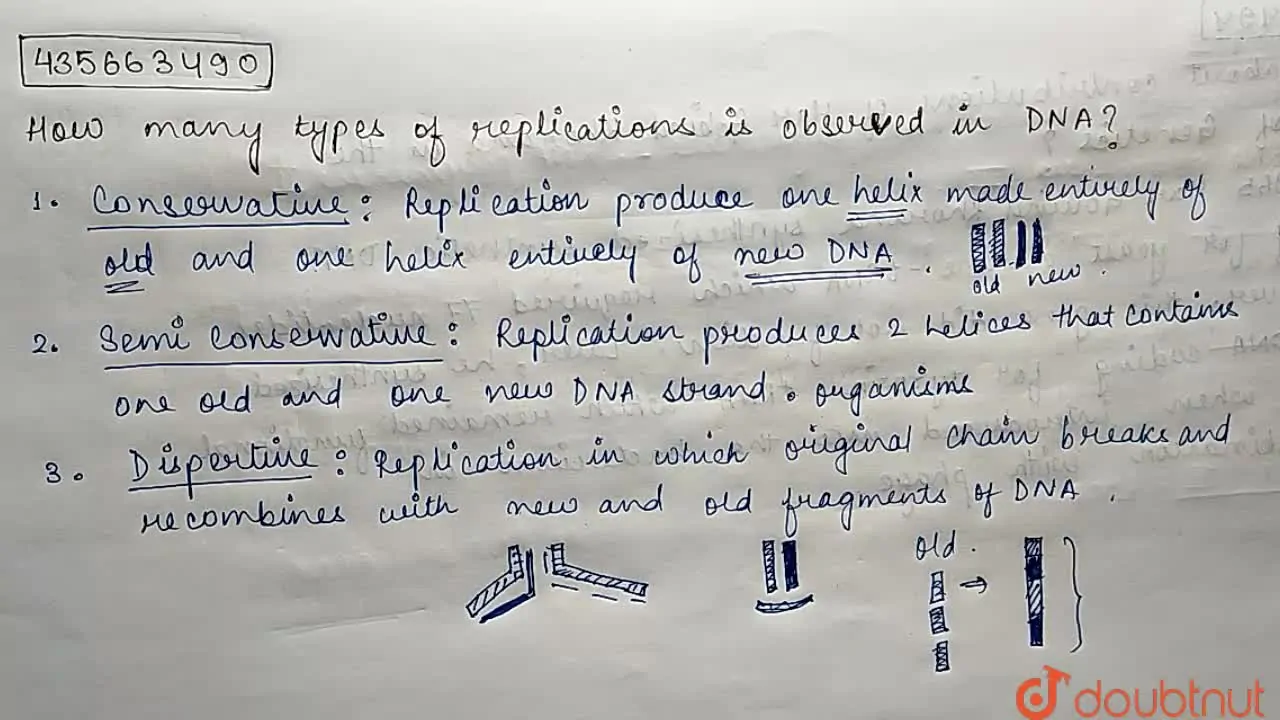 435663490
How many types of replications is observed in DNA?
1. Conservative: Replication produce one helix made entirely of
old and one helix entirely of new DNA.
old new.
2. Semi Conservative: Replication produces 2 helices that contains
one old and one new DNA strand. organisms
3. Dispertive: Replication in which original chain breaks and
recombines with new and old fragments of DNA.
old.
doubtnut